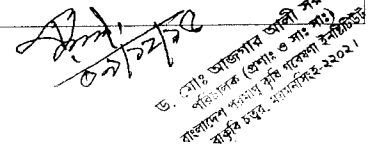 ০৯/১২/২৫
ড. মোঃ আজগার আলী সর
পরিচালক (প্রশাঃ ও সাঃ সাঃ)
বাংলাদেশ পরমাণু কৃষি গবেষণা ইনস্টিটিউট
বাকৃবি চত্বর, ময়মনসিংহ-২২০২।